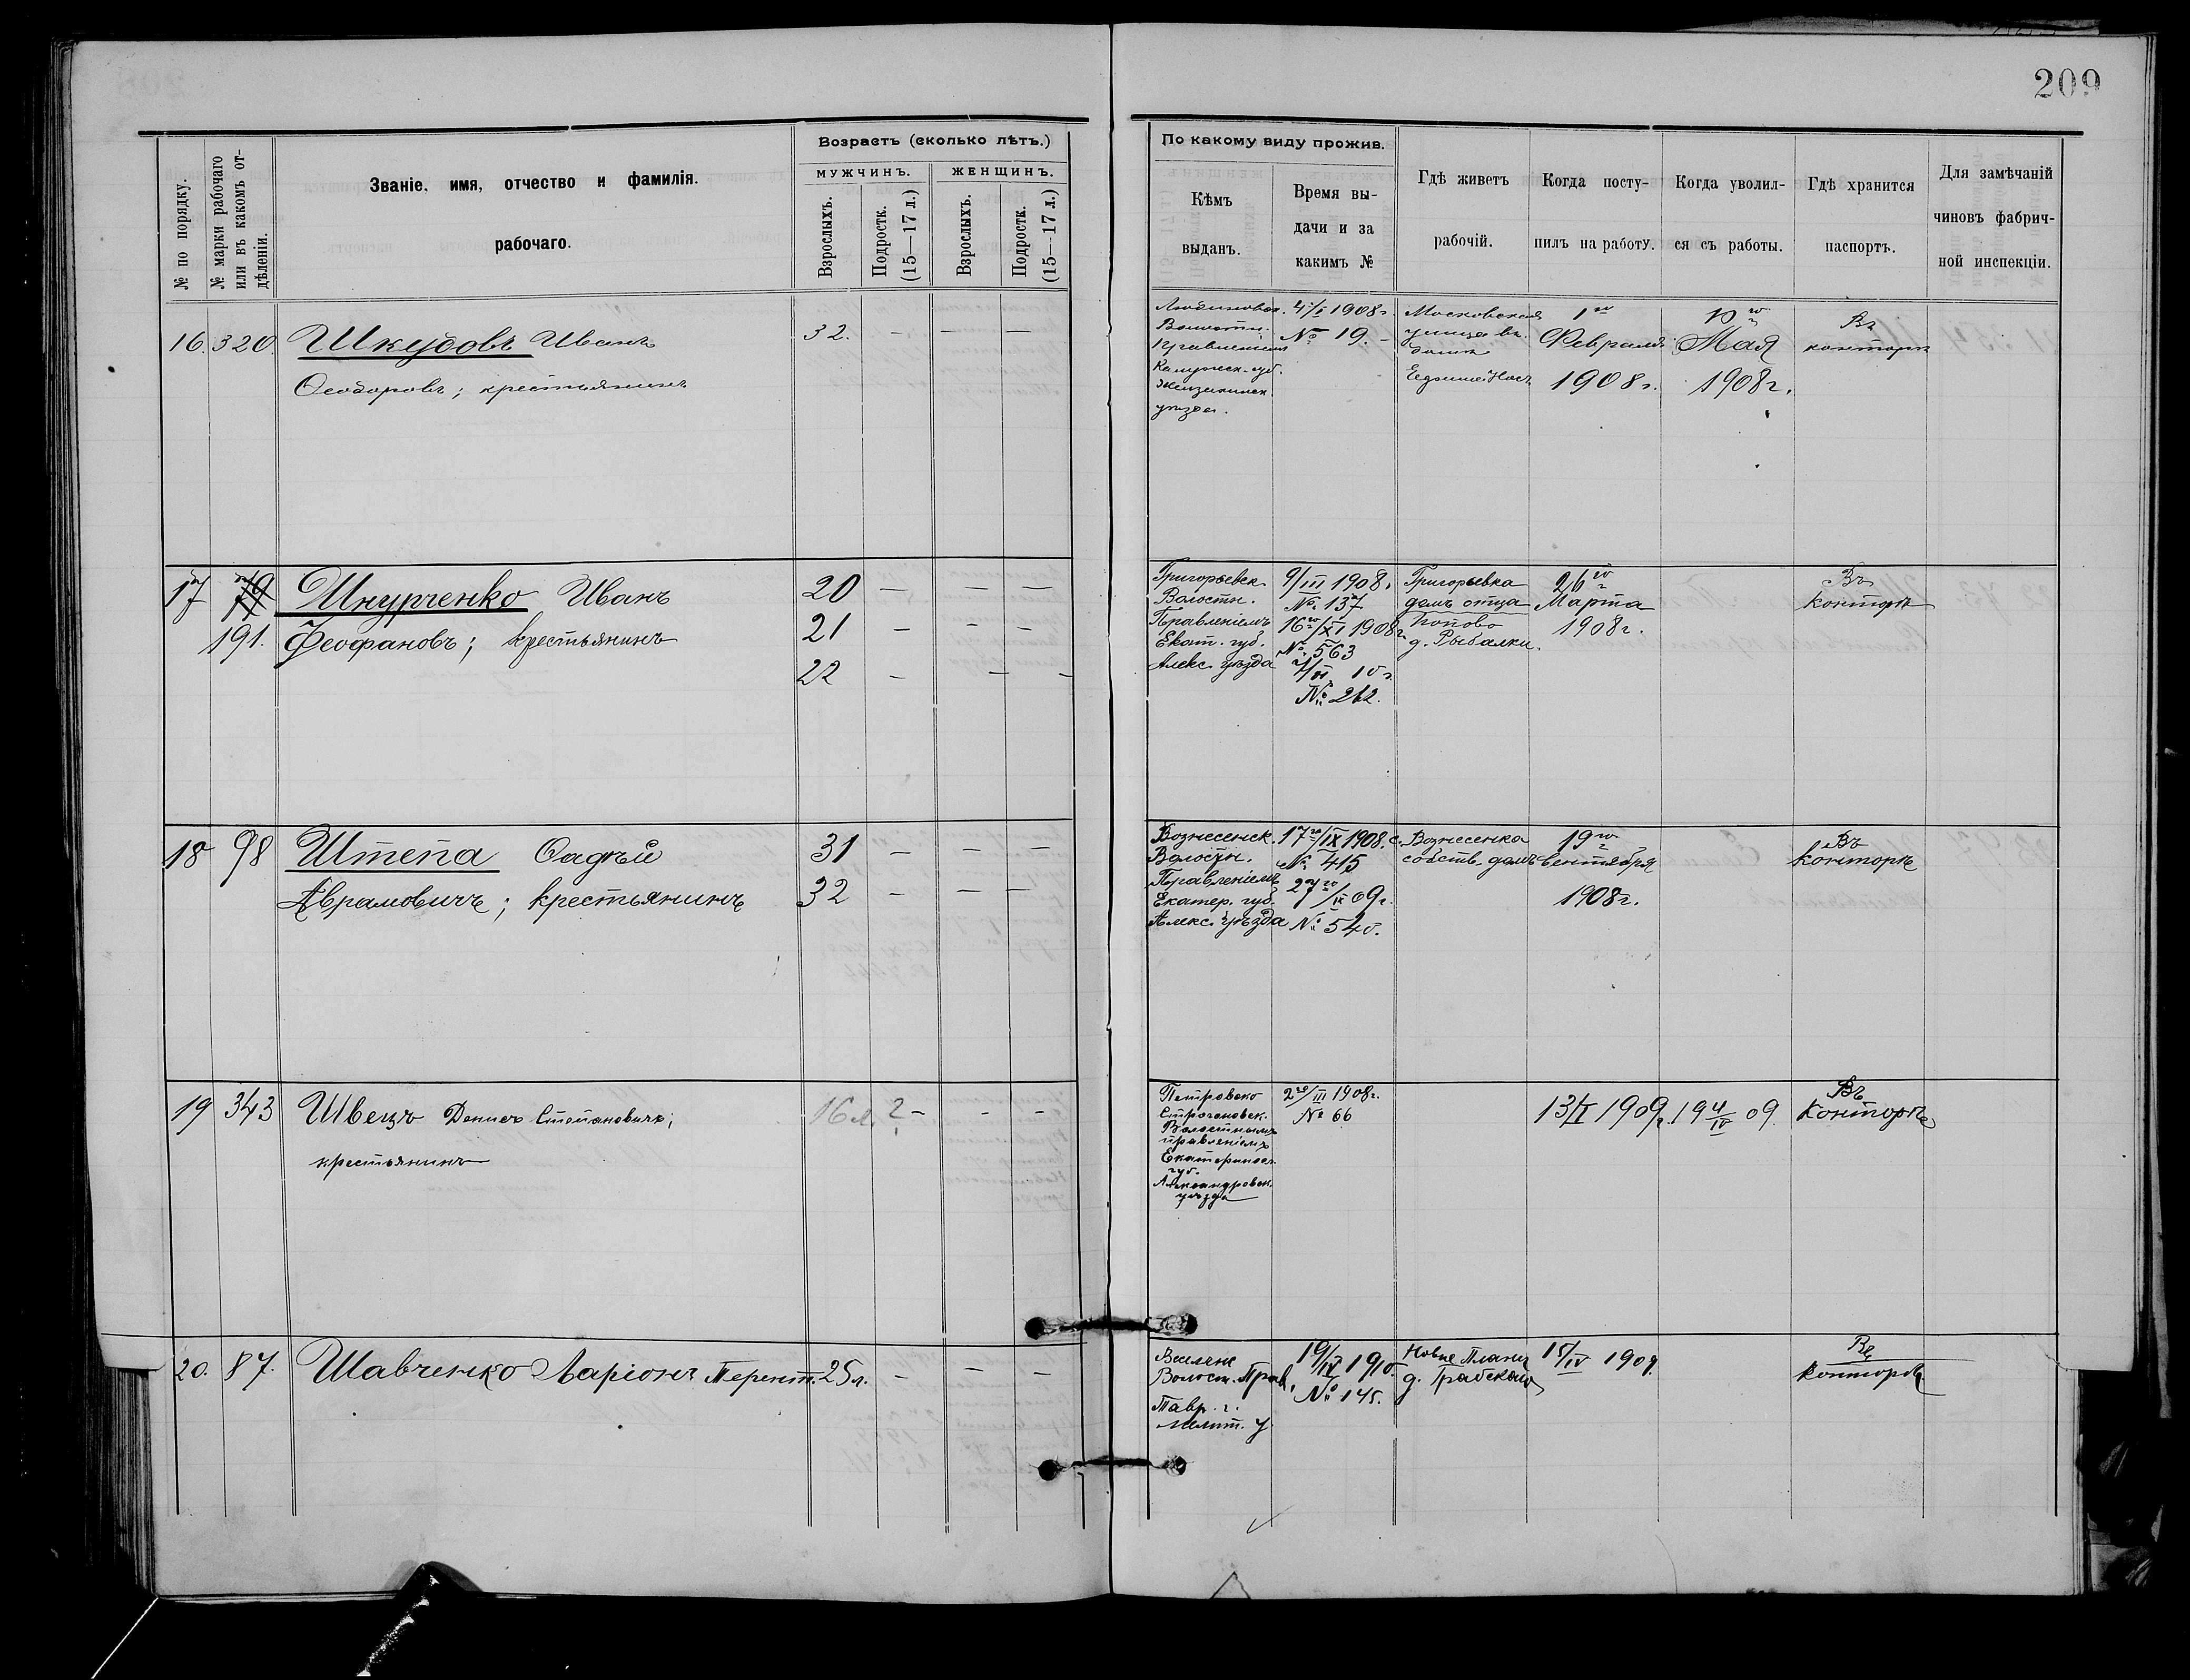 209
№ по порядку.
№ марки рабочаго или въ какомъ отдѣленіи.
Званіе, имя, отчество и фамилія.
рабочаго.
Возрастъ (сколько лѣтъ.)
МУЖЧИНЪ.
ЖЕНЩИНЪ.
Взрослыхъ.
Подростк. (15—17 л.)
Взрослыхъ.
Подростк. (15—17 л.)
По какому виду прожив.
Кѣмъ
выданъ.
Время вы-
дачи и за
какимъ №
Гдѣ живетъ
рабочій.
Когда посту-
пилъ на работу.
Когда уволил-
ся съ работы.
Гдѣ хранится
паспортъ.
Для замѣчаній
чиновъ фабрич-
ной инспекціи.
16. 320. Шкудовъ Иванъ
Ѳеодоровъ; крестьянинъ
32. — — —
Волостн.
Правленіемъ
Калужск. губ.
Жиздринск.
уѣзда.
4/I 1908 г.
№ 19.
Московская
улица въ
домѣ
1го
Февраля
1908 г.
10го
Мая
1908 г.
Въ
конторѣ
17 79 Шнурченко Иванъ
191. Феофановъ; крестьянинъ
20 — — —
21 — — —
22 — — —
Григорьевск.
Волостн.
Правленіемъ
Екат. губ.
Алекс. уѣзда
9/III 1908 г.
№ 137
16го/XI 1908 г.
№ 563
№ 262.
Григорьевка
домъ отца
Попово
д. Рыбалки.
26го
Марта
1908 г.
Въ
конторѣ
18 98 Штепа Ѳадѣй
Аврамовичъ; крестьянинъ
31 — — —
32 — — —
Вознесенск.
Волостн.
Правленіемъ
Екатер. губ.
Алекс. уѣзда
17го/IX 1908.
№ 415
27го/IX 09 г.
№ 540.
Вознесенка
собств. домъ
19го
сентября
1908 г.
Въ
конторѣ
19 343 Швецъ Денисъ Степановичъ;
крестьянинъ
16 л. ? — — —
Петровско
Строгоновск.
Волостнымъ
правленіемъ
Екатеринос.
губ.
Александровск.
уѣзда
2го/III 1908 г.
№ 66
13/I 1909 г.
19 4/IV 09.
Въ
Конторѣ
20. 87. Шавченко Ларіонъ Терент. 25 л. — — —
Волост. Прав.
Тавр. г.
Мелит. у.
19/IV 1910.
№ 145.
Новые Планы
д. Грабскаго
15/IV 1909.
Въ
конторѣ